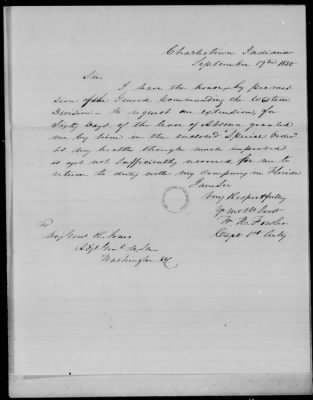 Charlestown Indiana
September 19th 1838
Sir
I have the honor by permis
sion of the General Commanding the Western
Division – to request an extension, for
Sixty days, of the leave of Absence granted
me by him in the enclosed "Special Order"
as my health though much improved
is yet not sufficiently recovered for me to
return to duty with my company in Florida
I am Sir
Very Respectfully
yr mo ob Servt
Capt 1st Arty
To
Maj Genl R. Jones
Adjt Genl U.S.A.
Washington